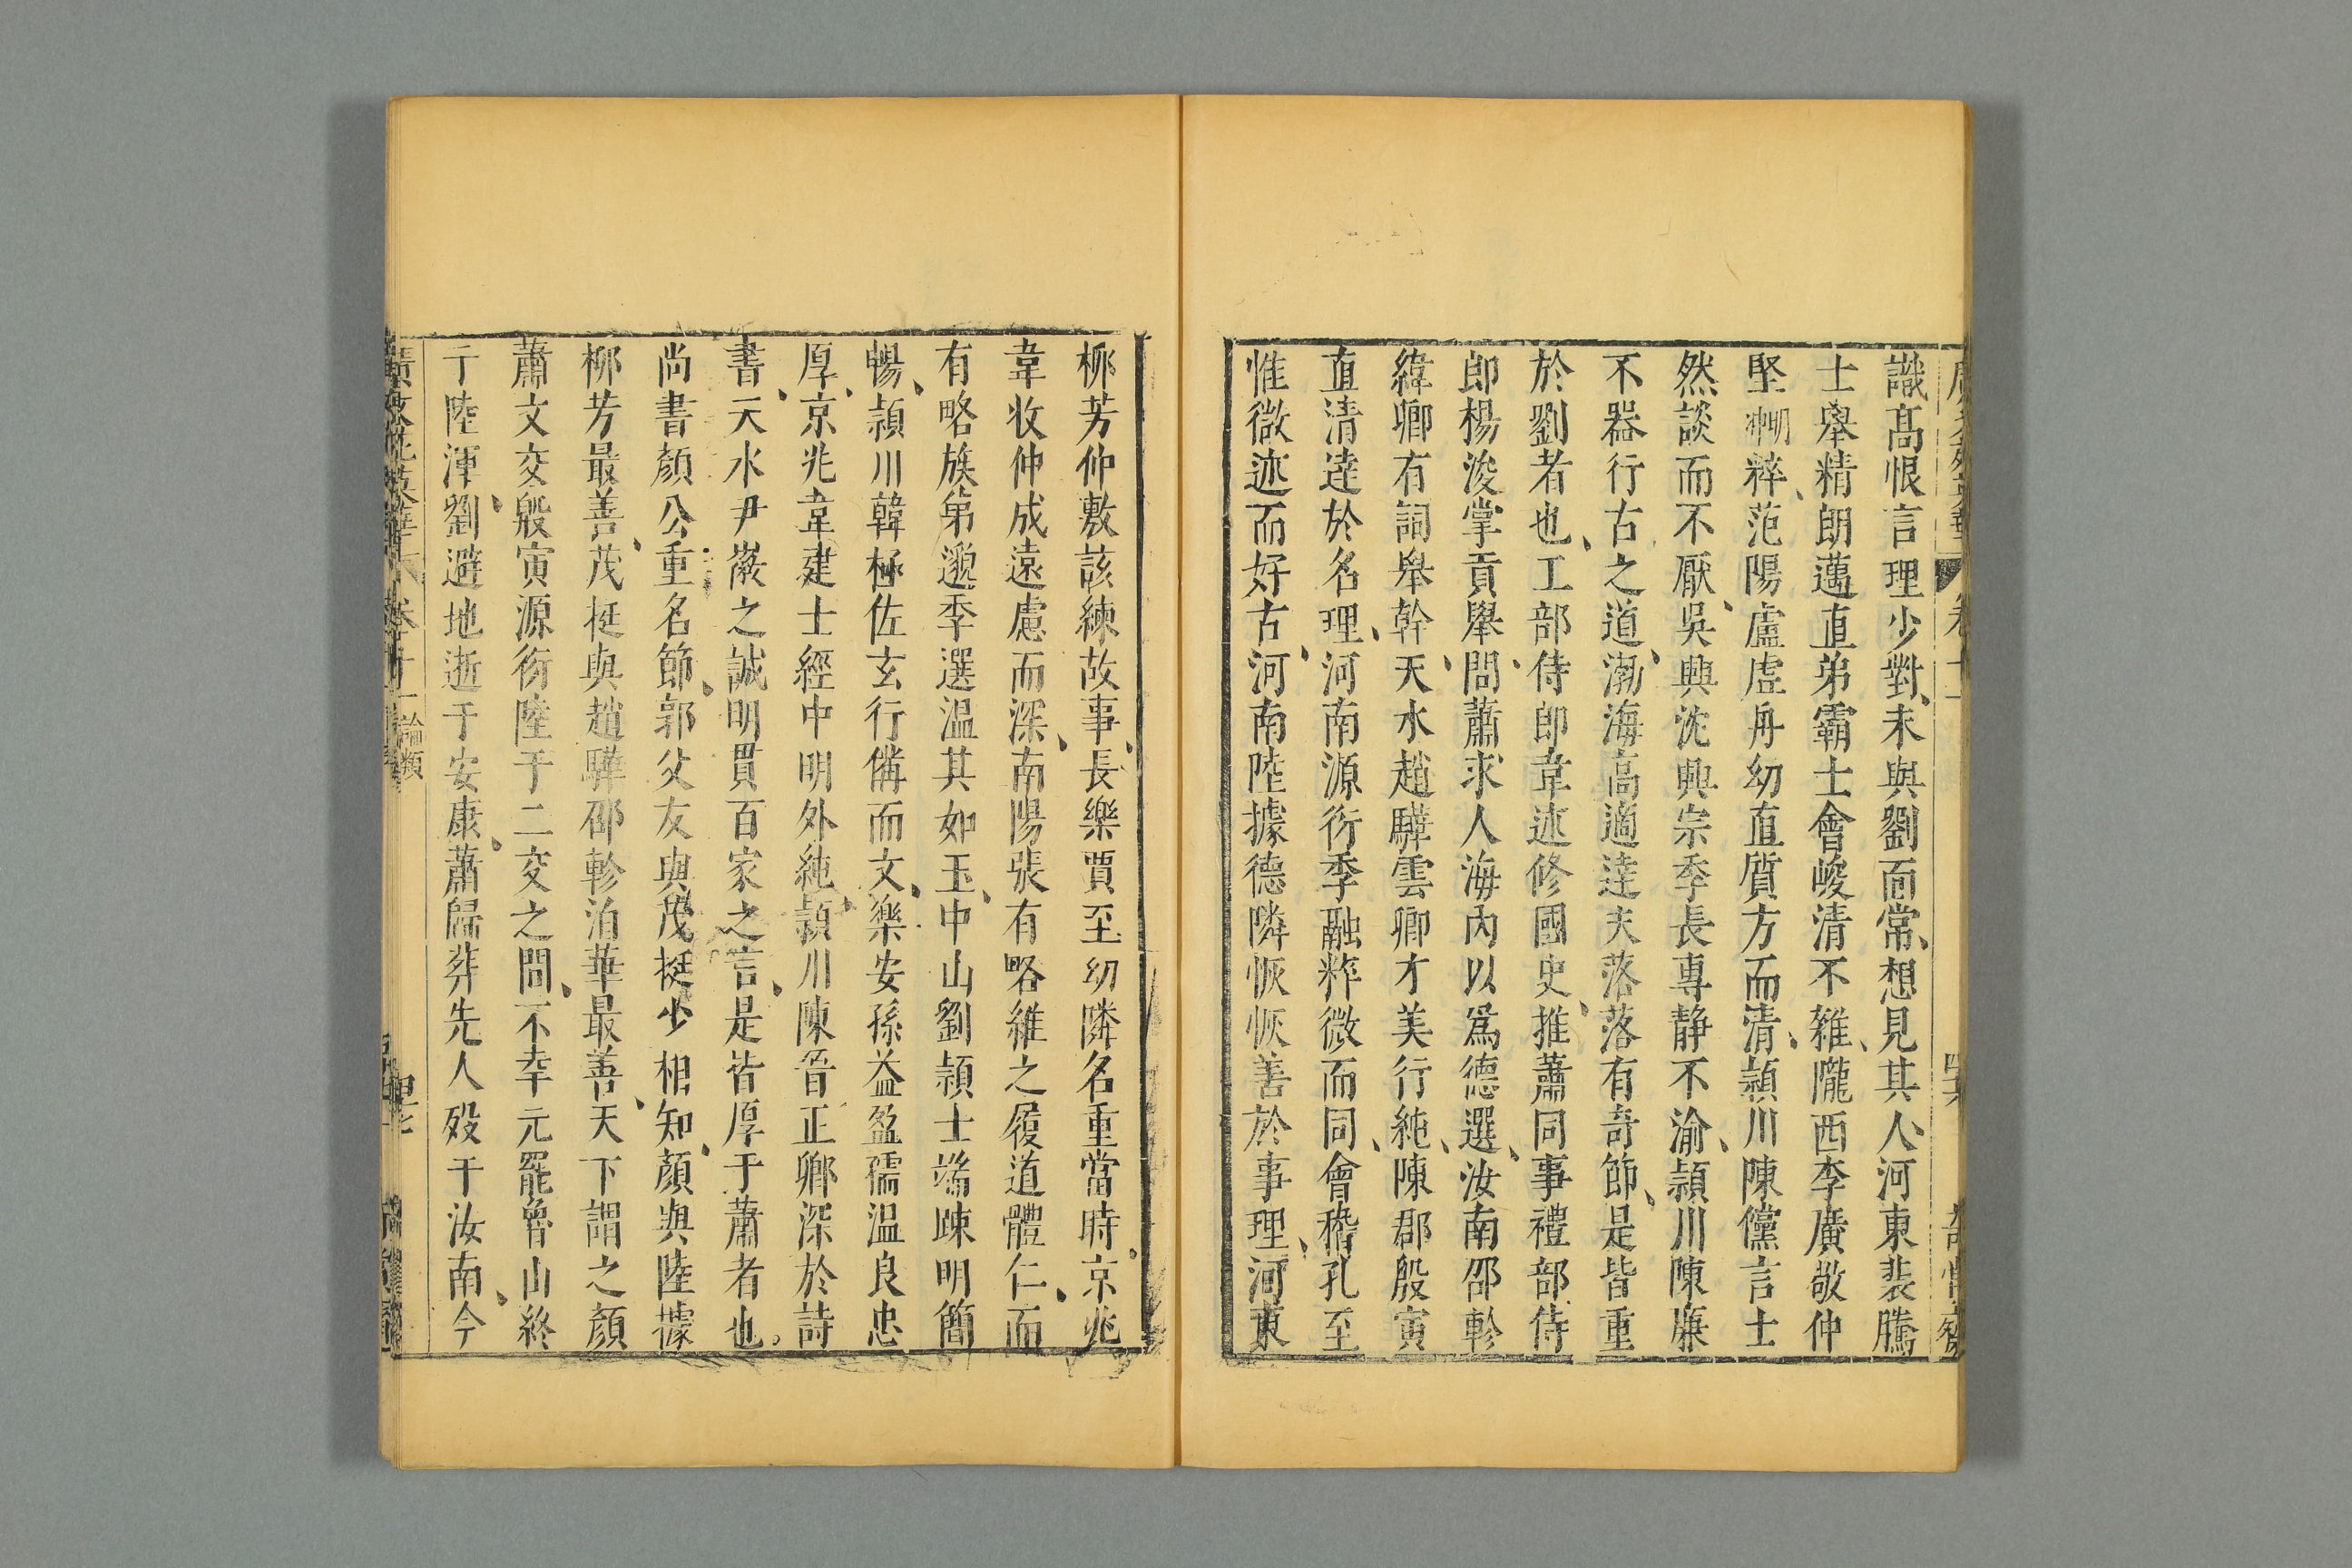 識高恨言理少對、未與劉面常、想見其人、河東裴騰
士舉精朗邁直弟霸士會峻清不雜、隴西李廣敬仲
堅明粹、范陽盧虛舟幼直質方而清、頴川陳儻言士
然談而不厭、吳興沈興宗季長專靜不渝、頴川陳廉
不器行古之道、渤海高適達夫落落有奇節、是皆重
於劉者也、工部侍郎韋述修國史、推蕭同事禮部侍
郎楊浚掌貢舉、問蕭求人海內以爲德選、汝南邵軫
緯卿有詞舉幹、天水趙驊雲卿才美行純、陳郡殷寅
直清達於名理、河南源衍季融粹微而同、會稽孔至
惟微述而好古、河南陸據德隣恢恢善於事理、河東
柳芳仲敷該練故事、長樂賈至幼隣名重當時、京兆
韋收仲成遠慮而深、南陽張有略維之履道體仁、而
有略族弟邈季選温其如玉、中山劉頴士端疎明簡
暢、頴川韓極佐玄行備而文、樂安孫益盈孺温良忠
厚、京兆韋建士經中明外純、頴川陳晉正卿深於詩
書、天水尹徵之誠明貫百家之言、是皆厚于蕭者也。
尚書顏公重名節、郭父友與茂挺少相知、顏與陸據
柳芳最善、茂挺與趙驊邵軫洎華最善、天下謂之顏
蕭文交殷寅源衍陸于二交之間、不幸元罷魯山終
于陸渾、劉避地逝于安康、蕭歸葬先人殁于汝南、今
卷十一 論類